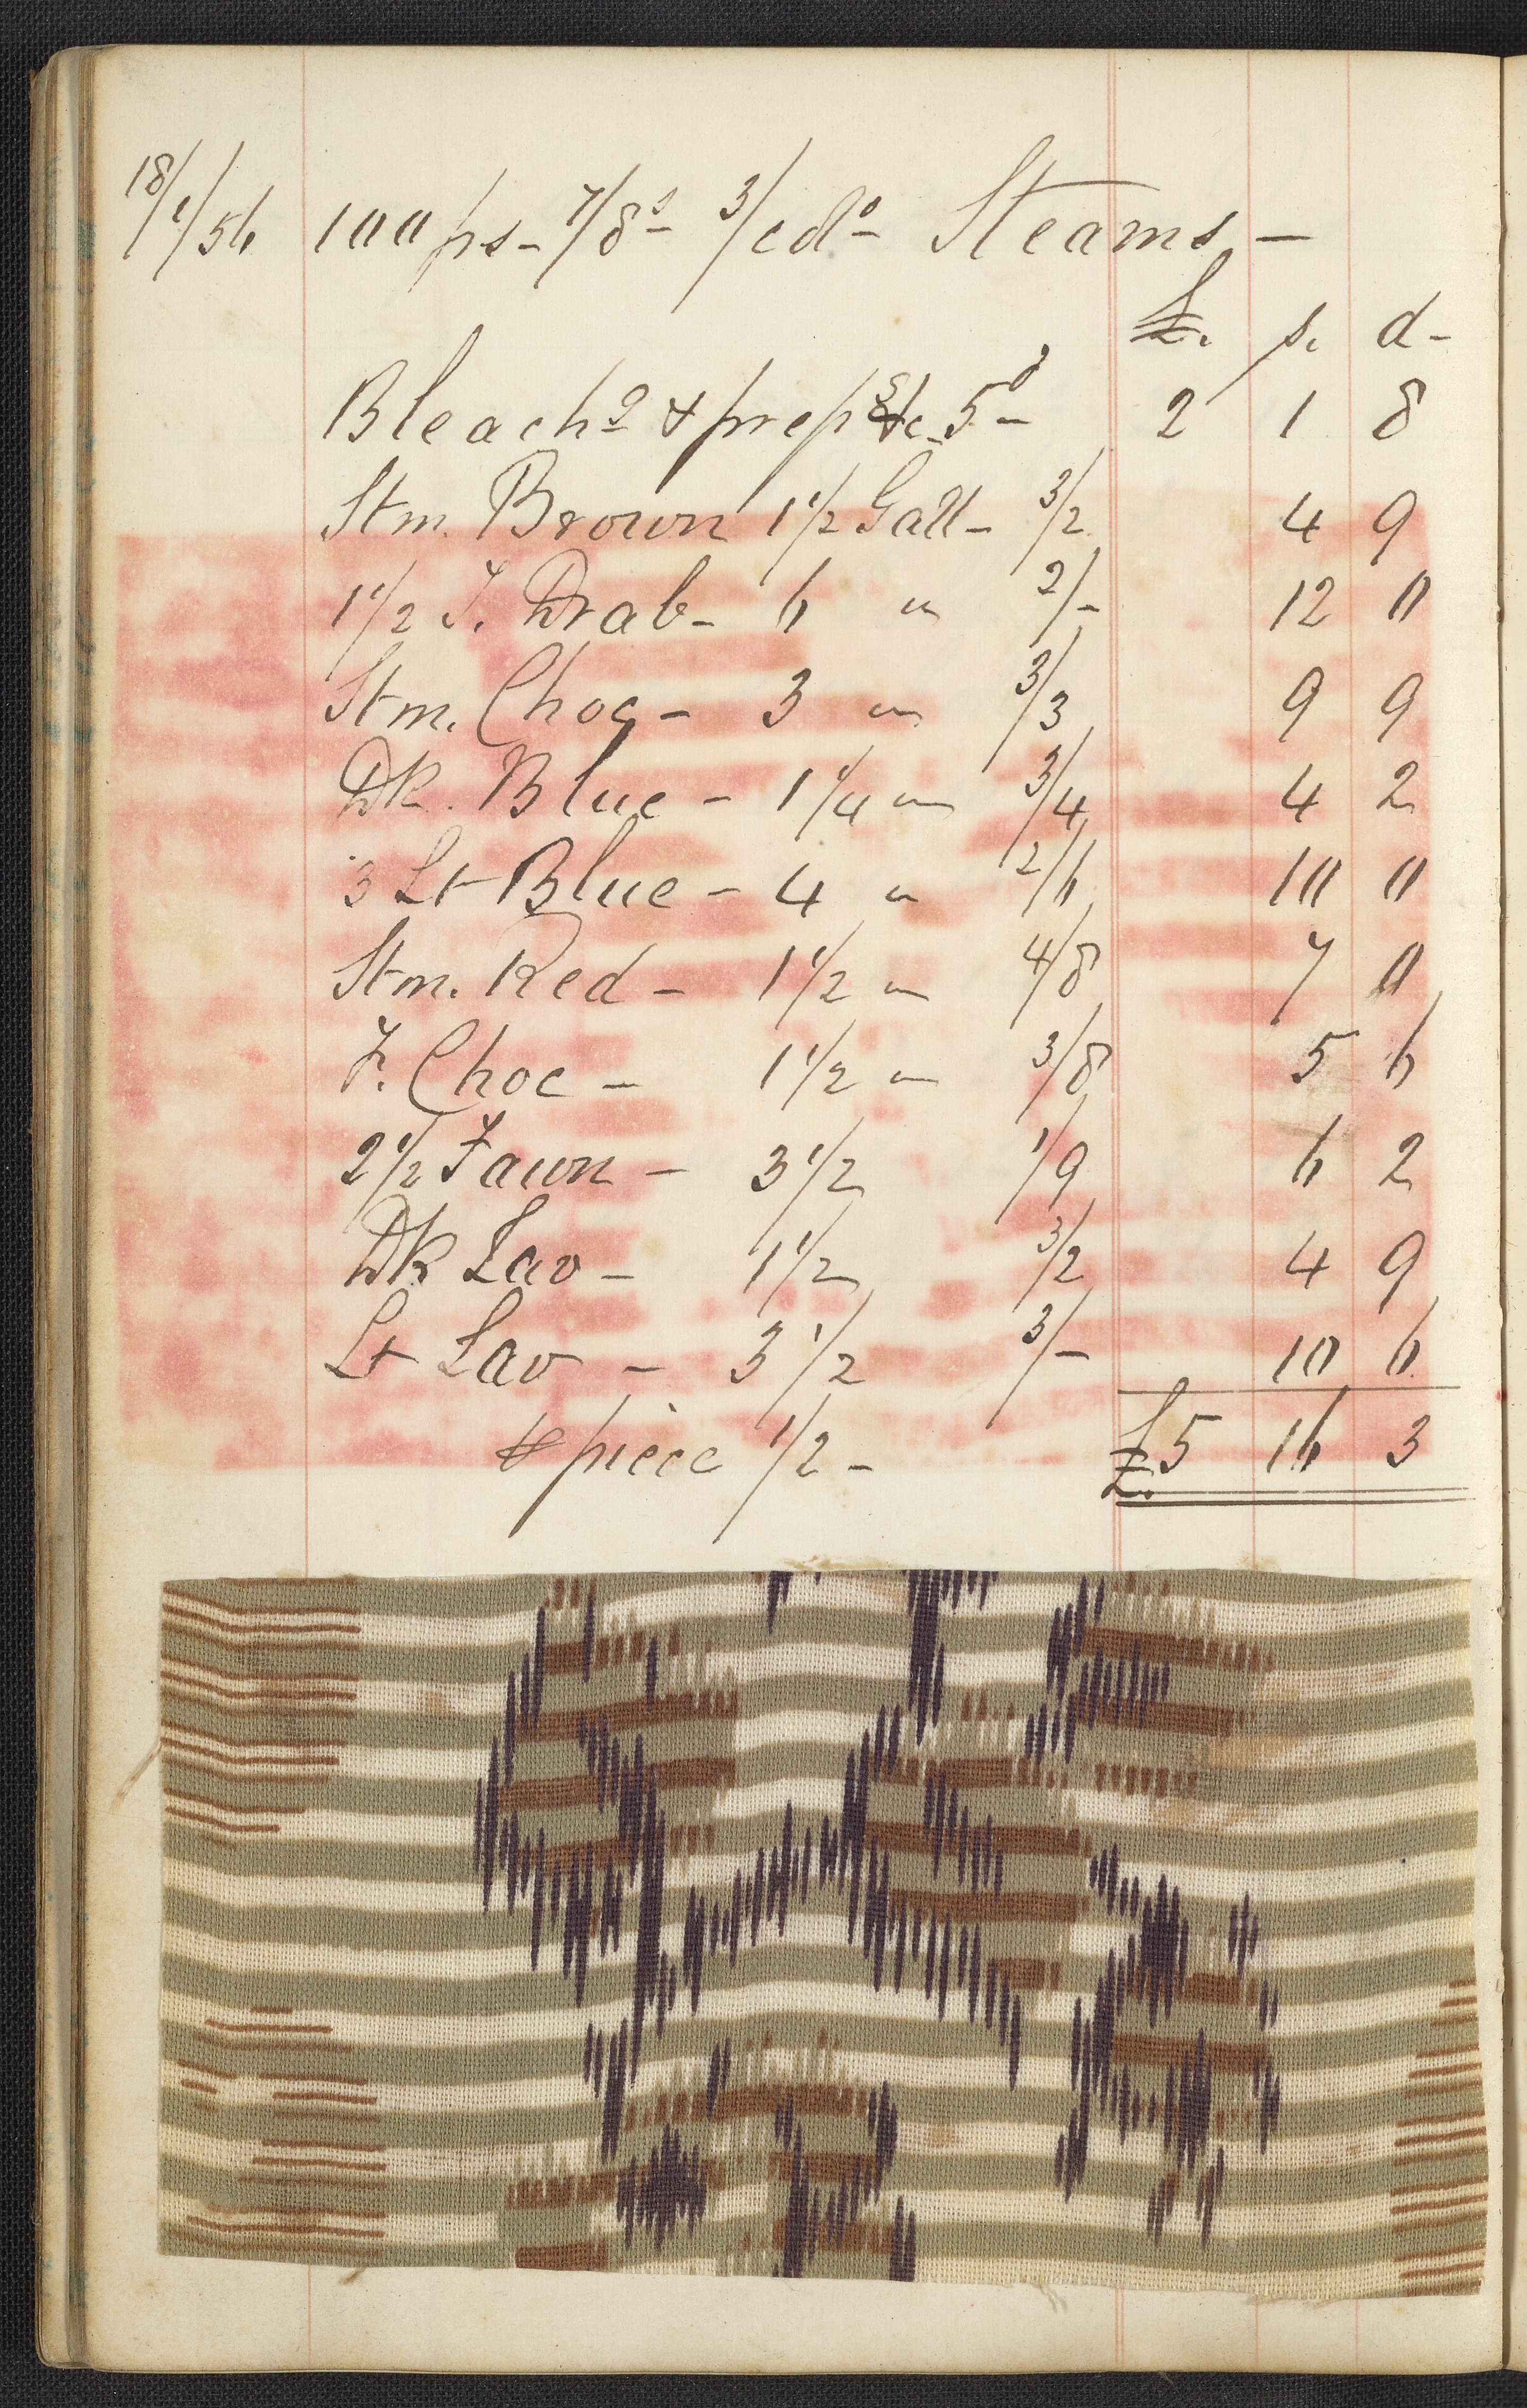 18/1/56 100 ps - 7/8s - 3/cdo - Steams -
£. s. d -
Bleachg & prepg &c 5d - 2 1 8
Stm. Brown 1 1/2 Gall - 3/2 4 9
1 1/2 F. Drab - 6 " 2/- 12 0
Stm. Choc - 3 " 3/3 9 9
Dk. Blue - 1 1/4 " 3/4 4 2
3 Lt Blue - 4 " 2/6 10 0
Stm. Red - 1 1/2 " 4/8 7 0
F. Choc - 1 1/2 " 3/8 5 6
2 1/2 Fawn - 3 1/2 1/9 6 2
Dk Lav - 1 1/2 3/2 4 9
Lt Lav - 3 1/2 3/- 10 6
℔ piece 1/2 - £5 16 3